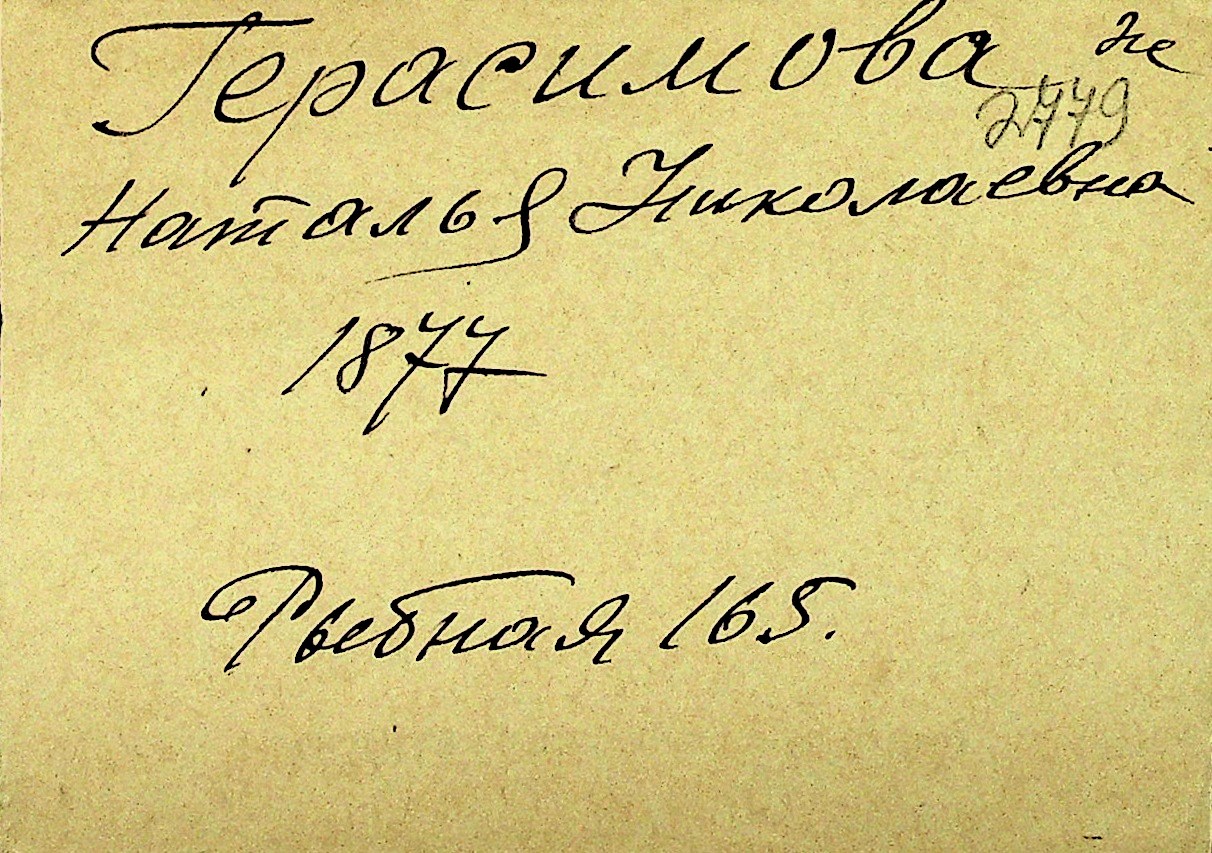 Герасимова не
2779
Наталья Николаевна
1877
Рыбная 165.